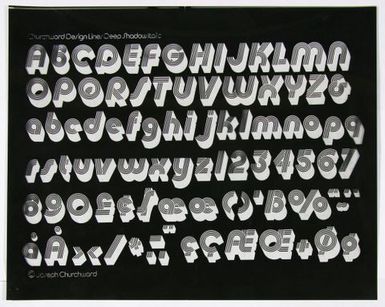 Churchward Design Lines Deep Shadow Italic
ABCDEFGHIJKLMN
OPQRSTUVWXYZ&
abcdefghijklmnopq
rstuvwxyz1234567
890£$æœ()'B%
åÅ></*
çÇÆŒØø
© Joseph Churchward